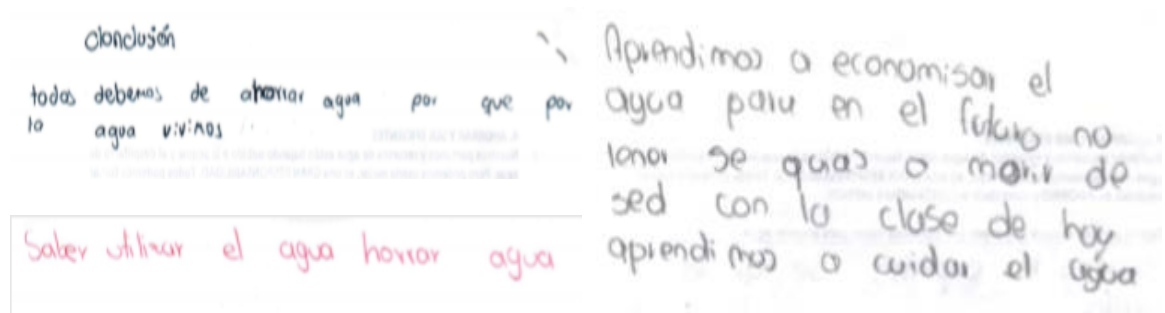 Conclusión
todos debemos de ahorrar agua por que por
la agua vivimos
Saber utilizar el agua horrar agua
Aprendimos a economisar el
agua para en el futuro no
tener se quias o morir de
sed con la clase de hoy
aprendimos a cuidar el agua